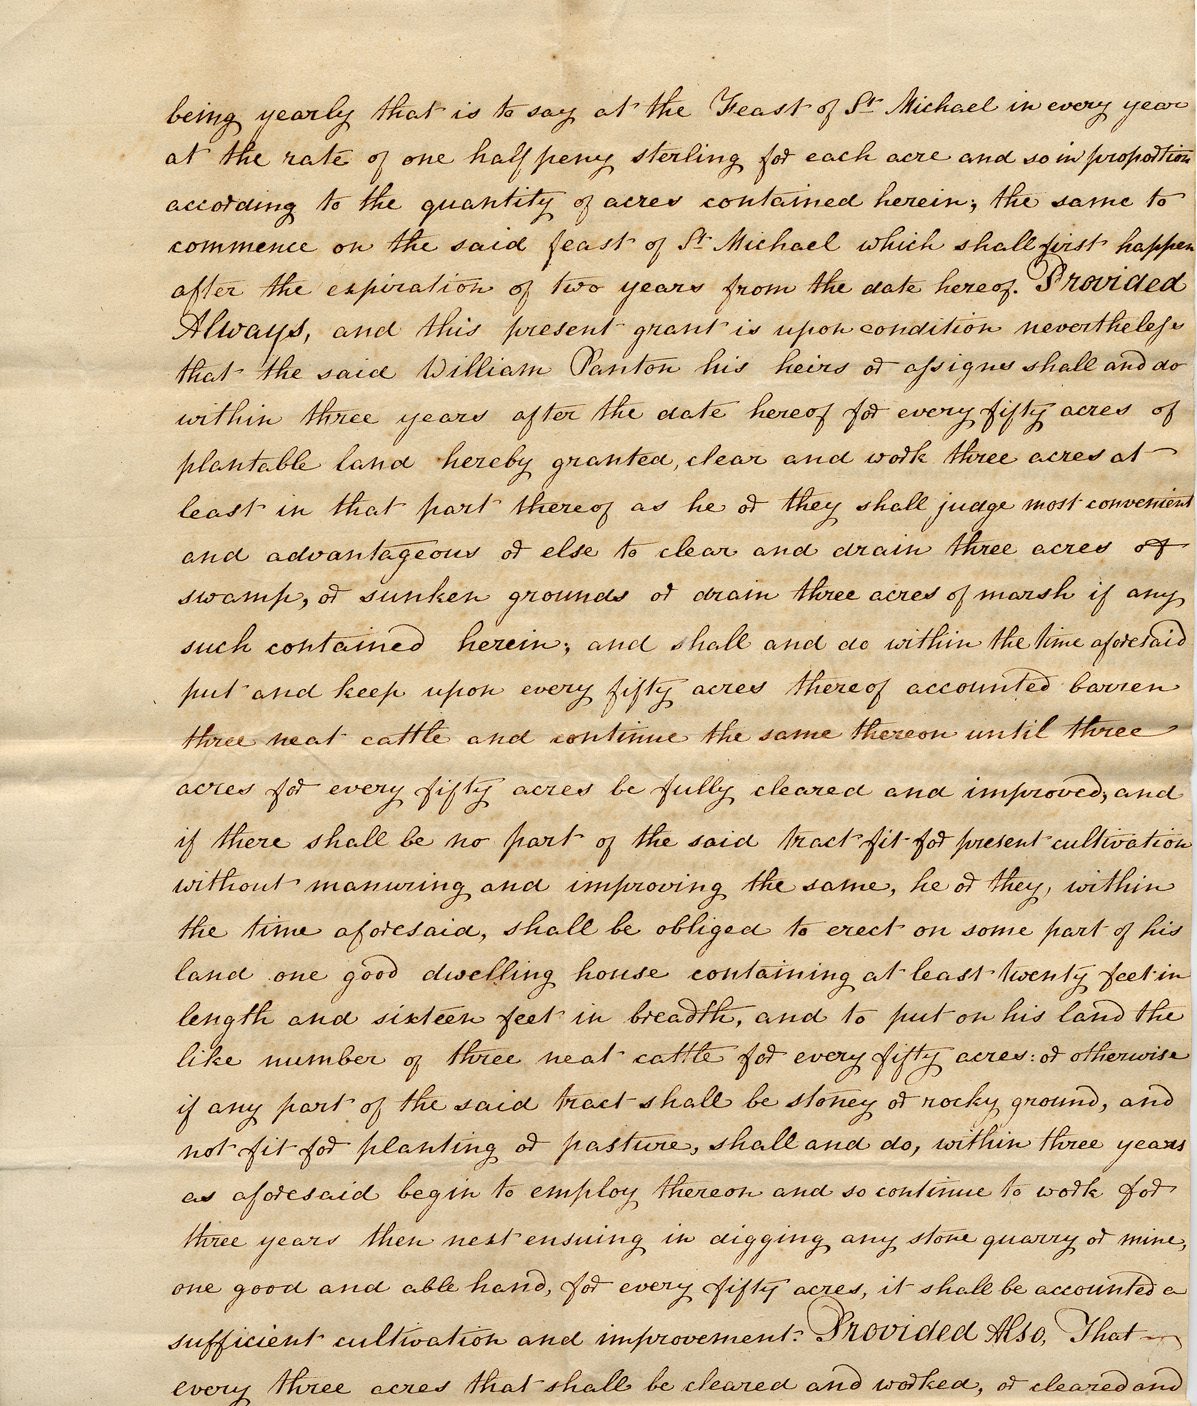 being yearly that is to say at the Feast of St Michael in every year
at the rate of one half peny sterling for each acre and so in proportion
according to the quantity of acres contained herein; the same to
commence on the said feast of St Michael which shall first happen
after the expiration of two years from the date hereof. Provided
Always, and this present grant is upon condition nevertheless
that the said William Panton his heirs or assigns shall and do
within three years after the date hereof for every fifty acres of
plantable land hereby granted, clear and work three acres at
least in that part thereof as he or they shall judge most convenient
and advantageous or else to clear and drain three acres of
swamp, or sunken grounds or drain three acres of marsh if any
such contained herein; and shall and do within the time aforesaid
put and keep upon every fifty acres thereof accounted barren
three neat cattle and continue the same thereon until three
acres for every fifty acres be fully cleared and improved, and
if there shall be no part of the said tract fit for present cultivation
without manuring and improving the same, he or they, within
the time aforesaid, shall be obliged to erect on some part of his
land one good dwelling house containing at least twenty feet in
length and sixteen feet in breadth, and to put on his land the
like number of three neat cattle for every fifty acres: or otherwise
if any part of the said tract shall be stoney or rocky ground, and
not fit for planting or pasture, shall and do, within three years
as aforesaid begin to employ thereon and so continue to work for
three years then next ensuing in digging any stone quarry or mine,
one good and able hand, for every fifty acres, it shall be accounted a
sufficient cultivation and improvement: Provided Also, That
every three acres that shall be cleared and worked, or cleared and